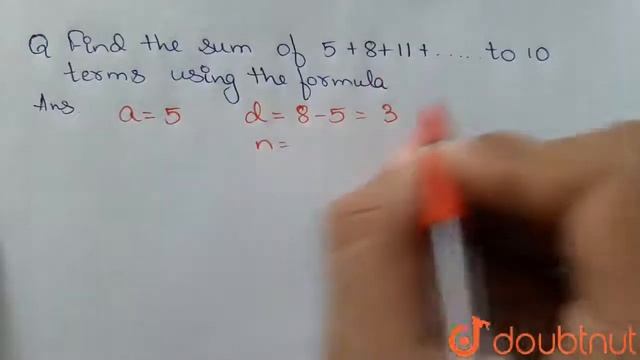 Q Find the sum of 5+8+11+..... to 10
terms using the formula
Ans a = 5 d = 8-5 = 3
n =
doubtnut